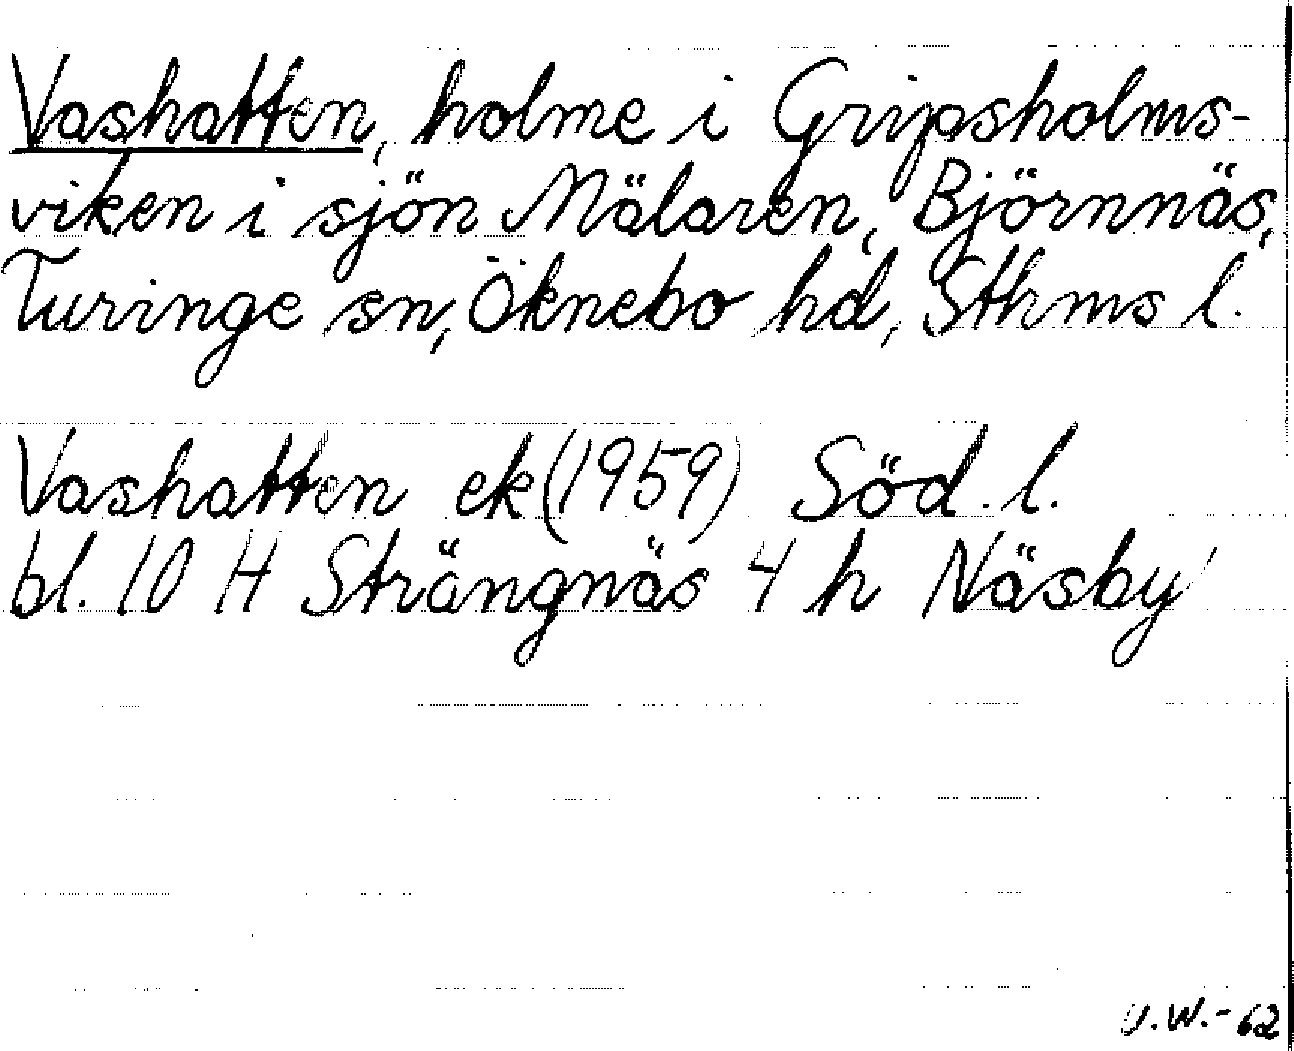 Vashatten, holme i Gripsholms-
viken i sjön Mälaren, Björnnäs,
Turinge sn, Öknebo hd, Sthms l.
Vashatten ek (1959) Söd. l.
bl. 10 H Strängnäs 4 h Näsby
U.W.-62